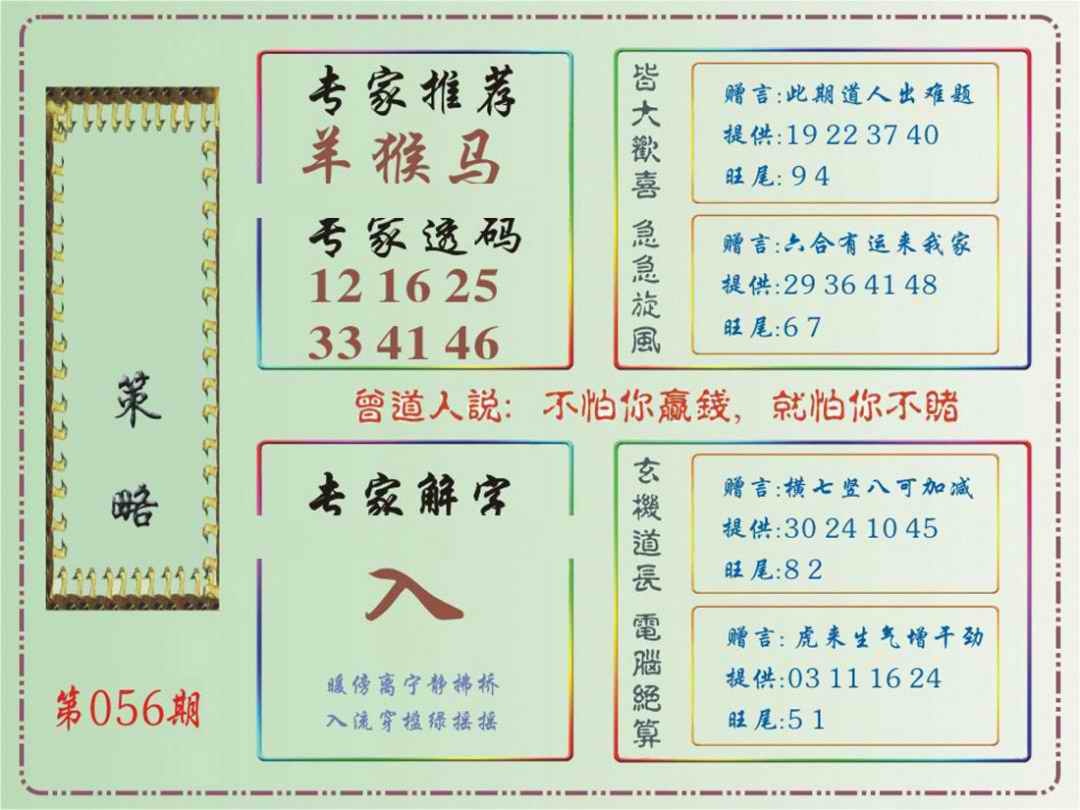 策
略
第056期
专家推荐
羊猴马
专家透码
12 16 25
33 41 46
皆大歡喜
赠言:此期道人出难题
提供:19 22 37 40
旺尾: 9 4
急急旋風
赠言:六合有运来我家
提供:29 36 41 48
旺尾:6 7
曾道人説: 不怕你贏錢, 就怕你不賭
专家解字
入
暖傍离宁静拂桥
入流穿槛绿摇摇
玄機道長
赠言:横七竖八可加减
提供:30 24 10 45
旺尾:8 2
電腦絕算
赠言: 虎来生气增干劲
提供:03 11 16 24
旺尾:5 1